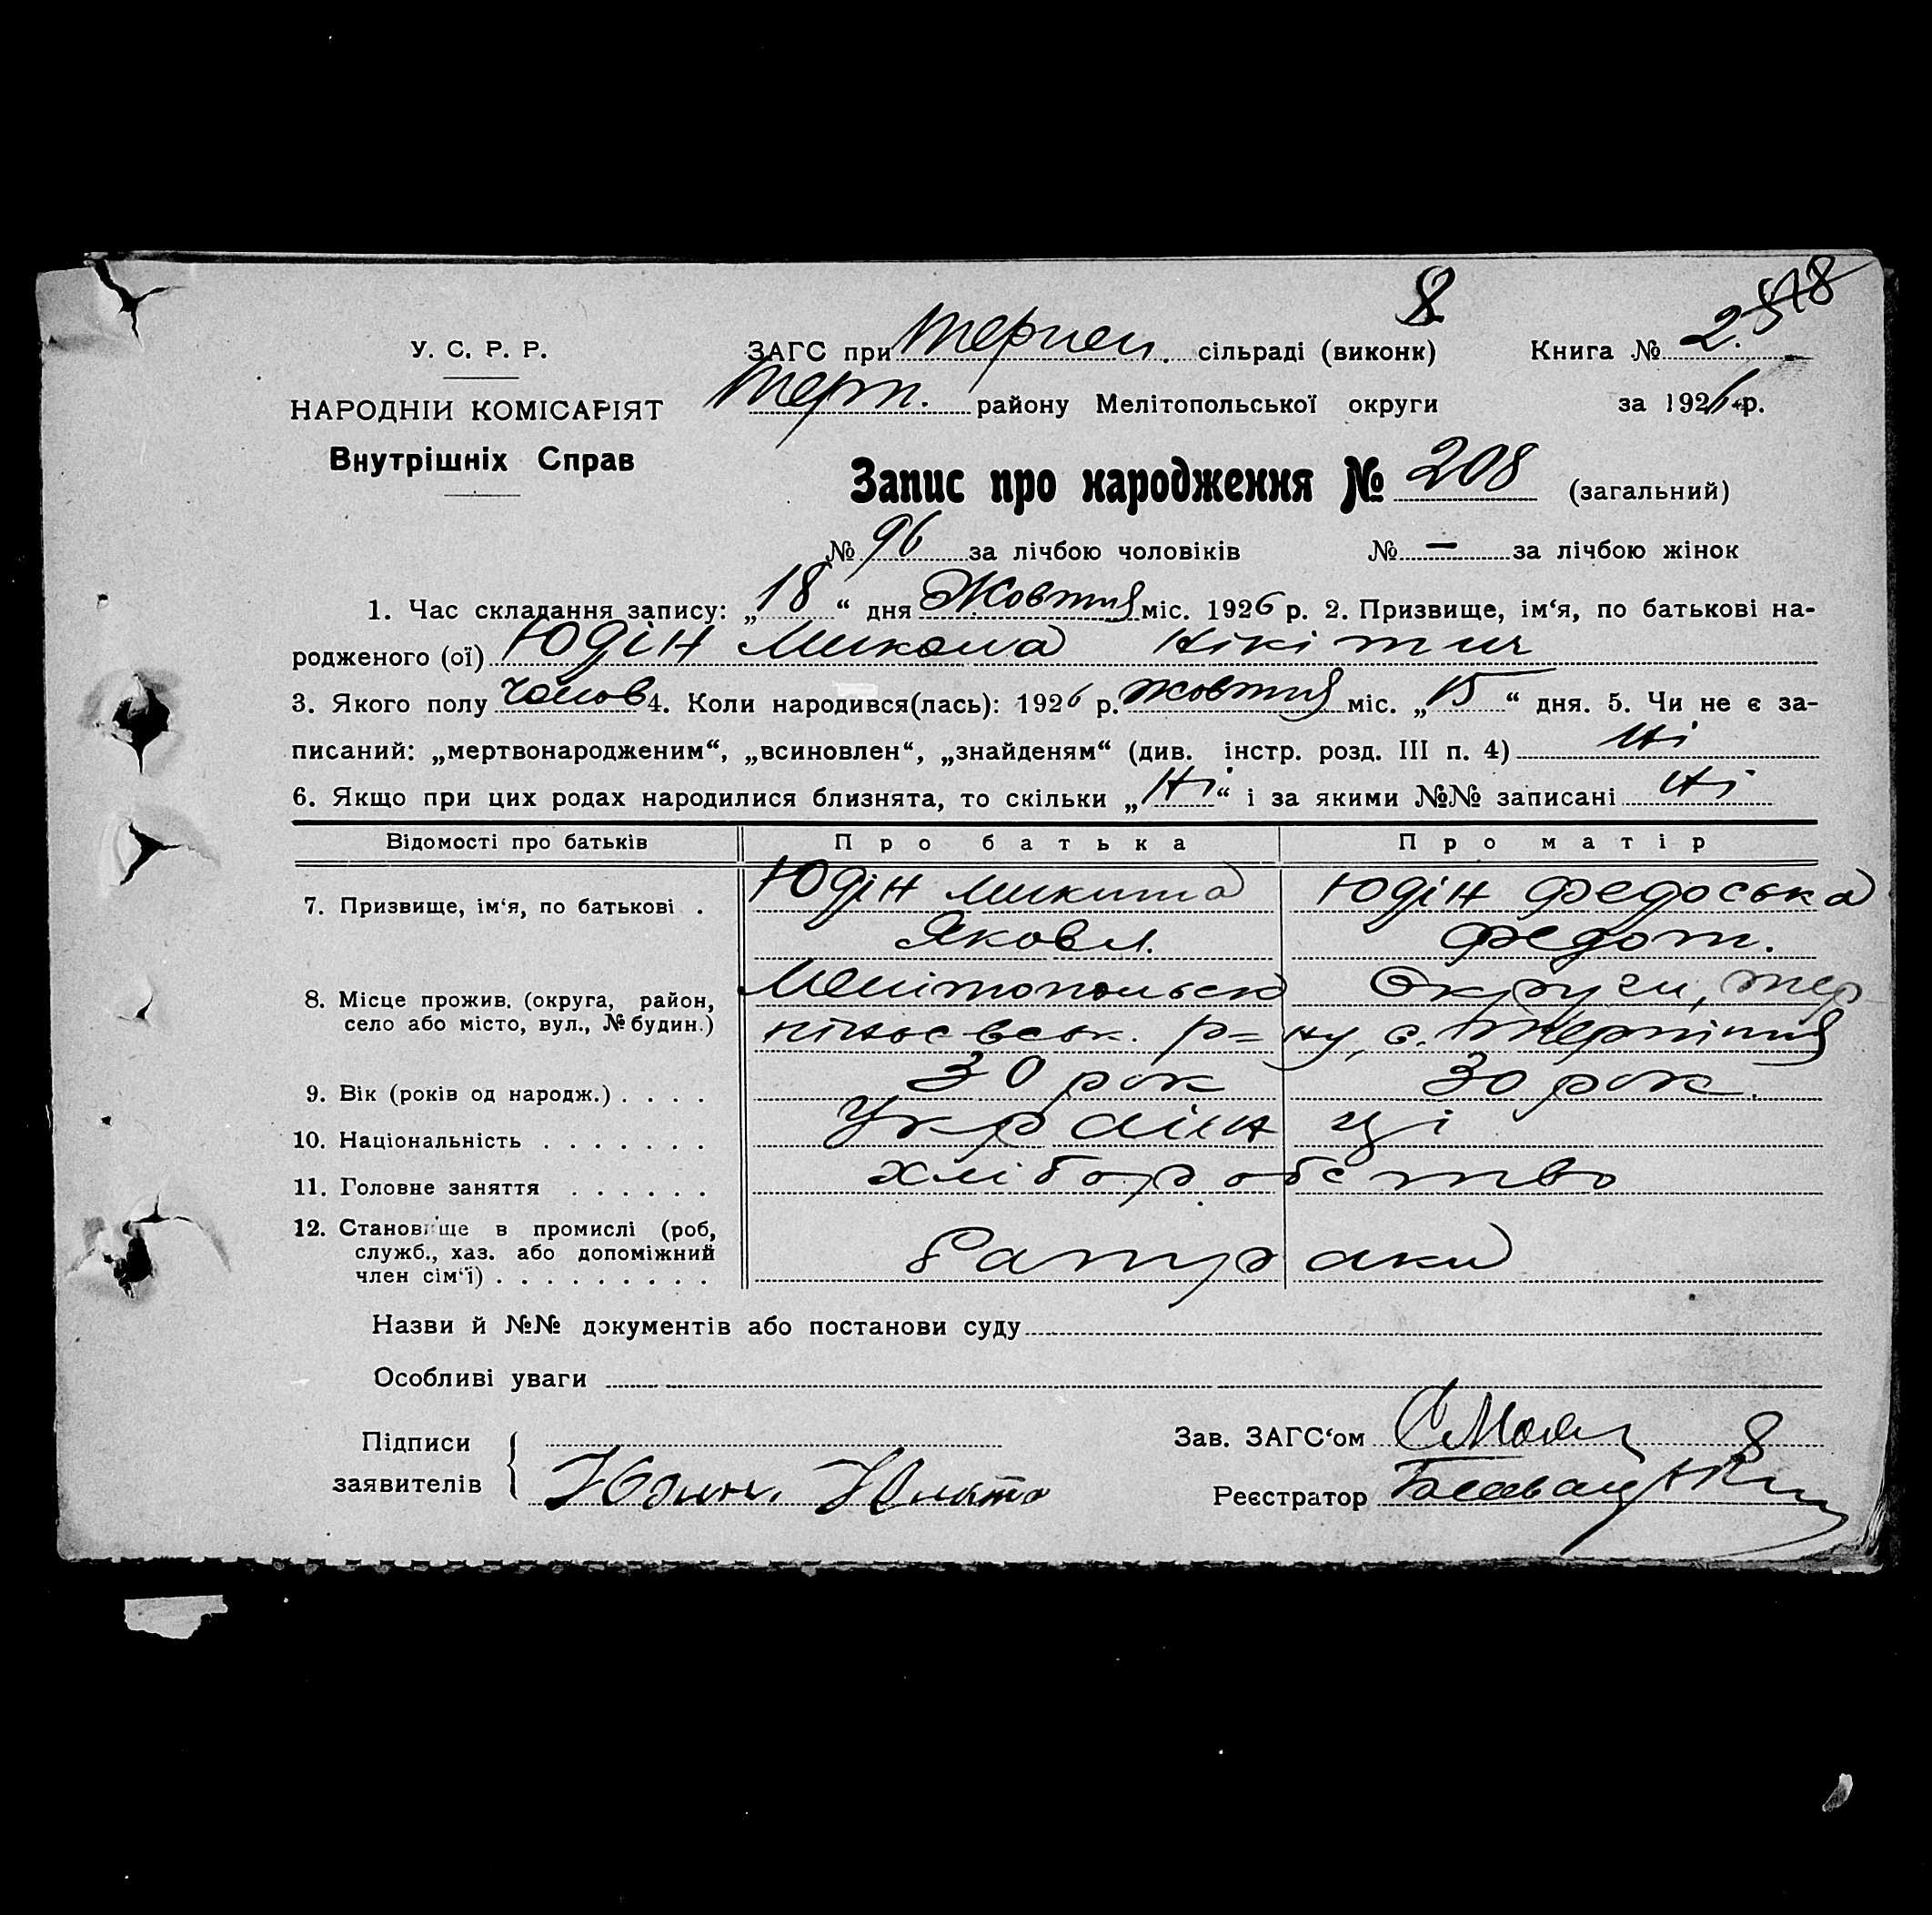 8
У. С. Р. Р.
ЗАГС при сільраді (виконк) Книга № 2.
НАРОДНІЙ КОМІСАРІЯТ
Терп. району Мелітопольської округи за 1926 р.
Внутрішніх Справ
Запис про народження № 208 (загальний)
№ 96 за лічбою чоловіків № — за лічбою жінок
1. Час складання запису: „18“ дня Жовтня міс. 1926 р. 2. Призвище, ім‘я, по батькові на-
родженого (ої) Юдін Микола Нікітич
3. Якого полу Чолов 4. Коли народився(лась): 1926 р. жовтня міс. „15“ дня. 5. Чи не є за-
писаний: „мертвонародженим“, „всиновлен“, „знайденям“ (див. інстр. розд. III п. 4) Ні
6. Якщо при цих родах народилися близнята, то скільки „Ні“ і за якими №№ записані Ні
Відомості про батьків Про батька Про матір
7. Призвище, ім‘я, по батькові . Юдін Микита Юдін Федоська
Яковл. Федот.
8. Місце прожив. (округа, район, Мелітопольськ Округи, Тер-
село або місто, вул., № будин.) р=ну, с. Терпіння
9. Вік (років од народж.) . . . . 30 рок 30 рок.
10. Національність . . . . . . . Українці
11. Головне заняття . . . . . . хліборобство
12. Становище в промислі (роб,
служб., хаз. або допоміжний батраки
член сім‘ї) . . . . . . . . .
Назви й №№ документів або постанови суду
Особливі уваги
Підписи Зав. ЗАГС‘ом
заявителів Юдин. Реєстратор